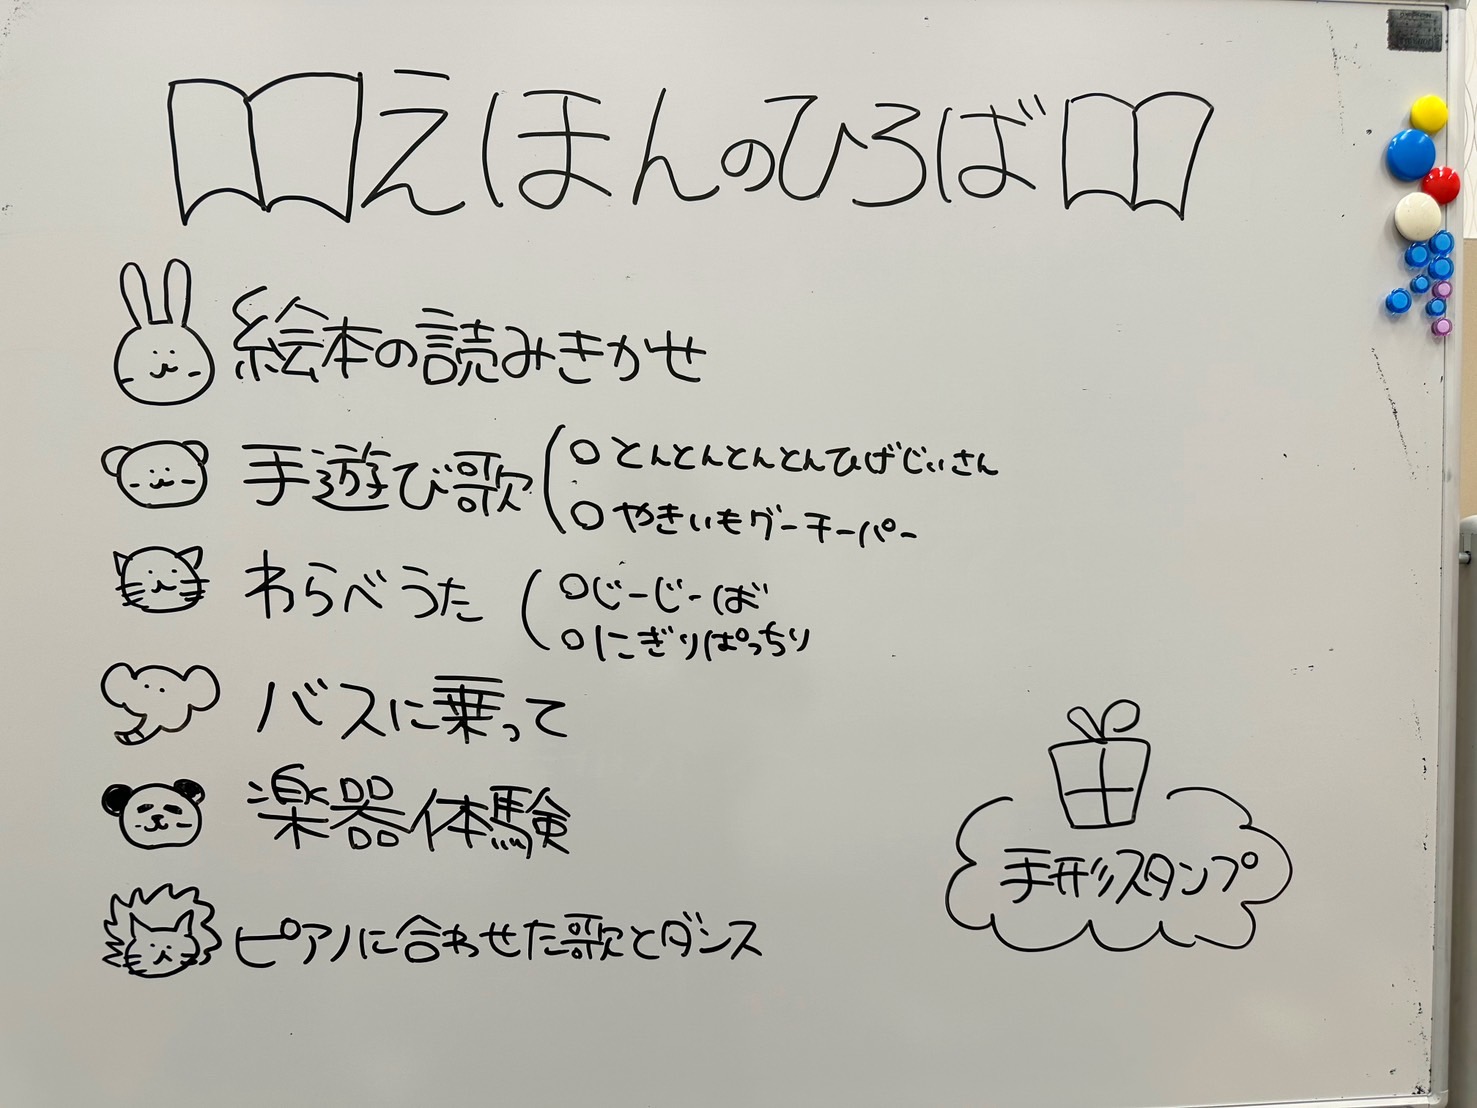 えほんのひろば
絵本の読みきかせ
手遊び歌
○とんとんとんとんひげじいさん
○やきいもグーチーパー
わらべうた
○じーじーば
○にぎりぱっちり
バスに乗って
楽器体験
ピアノに合わせた歌とダンス
手形スタンプ